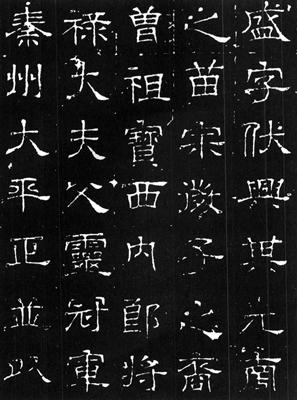 盛字伏興其先商
之苗宋微子之裔
曽祖寶西内郎将
禄大夫父靈冠軍
秦州大平正並以